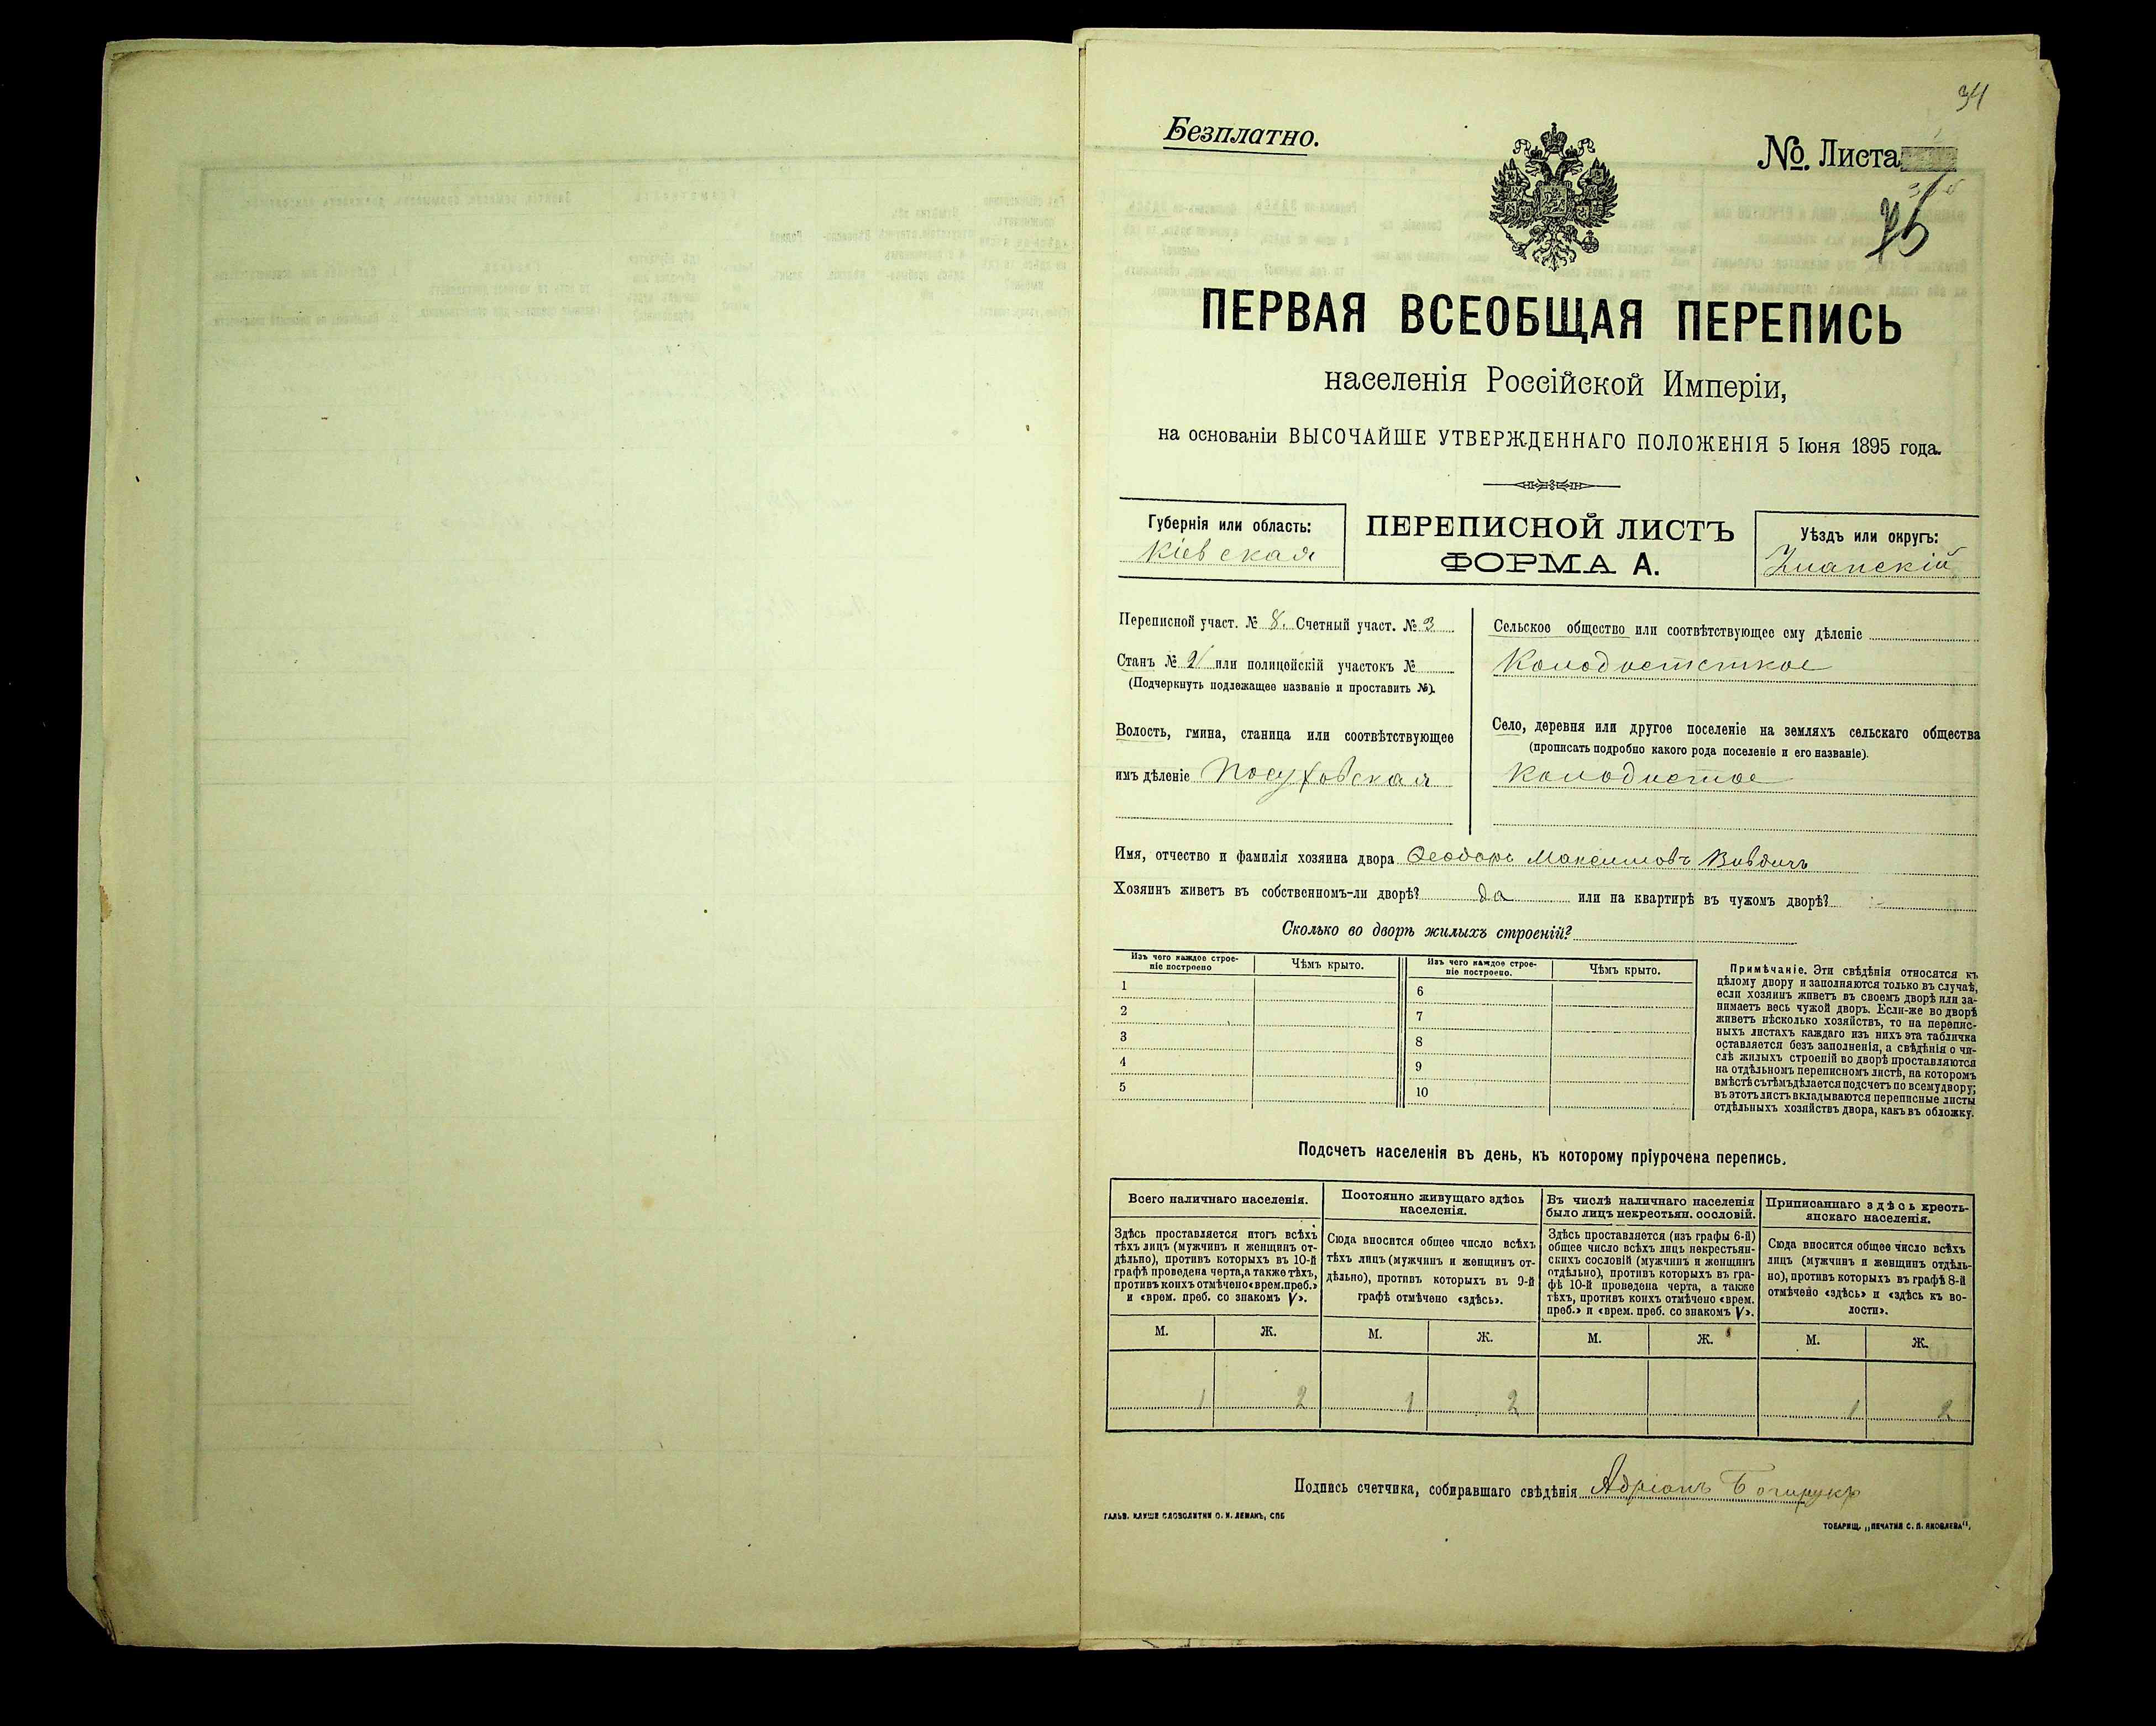 34
Безплатно.
№. Листа
ПЕРВАЯ ВСЕОБЩАЯ ПЕРЕПИСЬ
населенія Россійской Имперіи,
на основаніи ВЫСОЧАЙШЕ УТВЕРЖДЕННАГО ПОЛОЖЕНІЯ 5 Іюня 1895 года.
Губернія или область:
Кіевская
ПЕРЕПИСНОЙ ЛИСТЪ
ФОРМА А.
Уѣздъ или округъ:
Уманскій
Переписной участ. № 8. Счетный участ. № 3
Станъ № 2 или полицейскій участокъ №
(Подчеркнуть подлежащее названіе и проставить №).
Волость, гмина, станица или соотвѣтствующее
имъ дѣленіе Посуховская
Сельское общество или соотвѣтствующее ему дѣленіе
Колодистское
Село, деревня или другое поселеніе на земляхъ сельскаго общества
(прописать подробно какого рода поселеніе и его названіе).
Колодистое
Имя, отчество и фамилія хозяина двора Ѳеодоръ Максимовъ
Хозяинъ живетъ въ собственномъ-ли дворѣ? да или на квартирѣ въ чужомъ дворѣ? -
Сколько во дворѣ жилыхъ строеній?
Изъ чего каждое строе-
ніе построено
Чѣмъ крыто.
1
2
3
4
5
Изъ чего каждое строе-
ніе построено.
Чѣмъ крыто.
6
7
8
9
10
Примѣчаніе. Эти свѣдѣнія относятся къ
цѣлому двору и заполняются только въ случаѣ,
если хозяинъ живетъ въ своемъ дворѣ или за-
нимаетъ весь чужой дворъ. Если-же во дворѣ
живетъ нѣсколько хозяйствъ, то на перепис-
ныхъ листахъ каждаго изъ нихъ эта табличка
оставляется безъ заполненія, а свѣдѣнія о чи-
слѣ жилыхъ строеній во дворѣ проставляются
на отдѣльномъ переписномъ листѣ, на которомъ
вмѣстѣ съ тѣмъ дѣлается подсчетъ по всему двору;
въ этотъ листъ вкладываются переписные листы
отдѣльныхъ хозяйствъ двора, какъ въ обложку.
Подсчетъ населенія въ день, къ которому пріурочена перепись.
Всего наличнаго населенія.
Здѣсь проставляется итогъ всѣхъ
тѣхъ лицъ (мужчинъ и женщинъ от-
дѣльно), противъ которыхъ въ 10-й
графѣ проведена черта, а также тѣхъ,
противъ коихъ отмѣчено «врем. преб.»
и «врем. преб. со знакомъ V».
Постоянно живущаго здѣсь
населенія.
Сюда вносится общее число всѣхъ
тѣхъ лицъ (мужчинъ и женщинъ от-
дѣльно), противъ которыхъ въ 9-й
графѣ отмѣчено «здѣсь».
Въ числѣ наличнаго населенія
было лицъ некрестьян. сословій.
Здѣсь проставляется (изъ графы 6-й)
общее число всѣхъ лицъ некрестьян-
скихъ сословій (мужчинъ и женщинъ
отдѣльно), противъ которыхъ въ гра-
фѣ 10-й проведена черта, а также
тѣхъ, противъ коихъ отмѣчено «врем.
преб.» и «врем. преб. со знакомъ V».
Приписаннаго здѣсь кресть-
янскаго населенія.
Сюда вносится общее число всѣхъ
лицъ (мужчинъ и женщинъ отдѣль-
но), противъ которыхъ въ графѣ 8-й
отмѣчено «здѣсь» и «здѣсь къ во-
лости».
М. Ж. М. Ж. М. Ж. М. Ж.
1 2 1 2 1 2
Подпись счетчика, собиравшаго свѣдѣнія Адріанъ
ГАЛЬВ. КЛИШЕ СЛОВОЛИТНИ О. И. ЛЕМАНЪ, СПБ
ТОВАРИЩ. „ПЕЧАТНЯ С. П. ЯКОВЛЕВА".